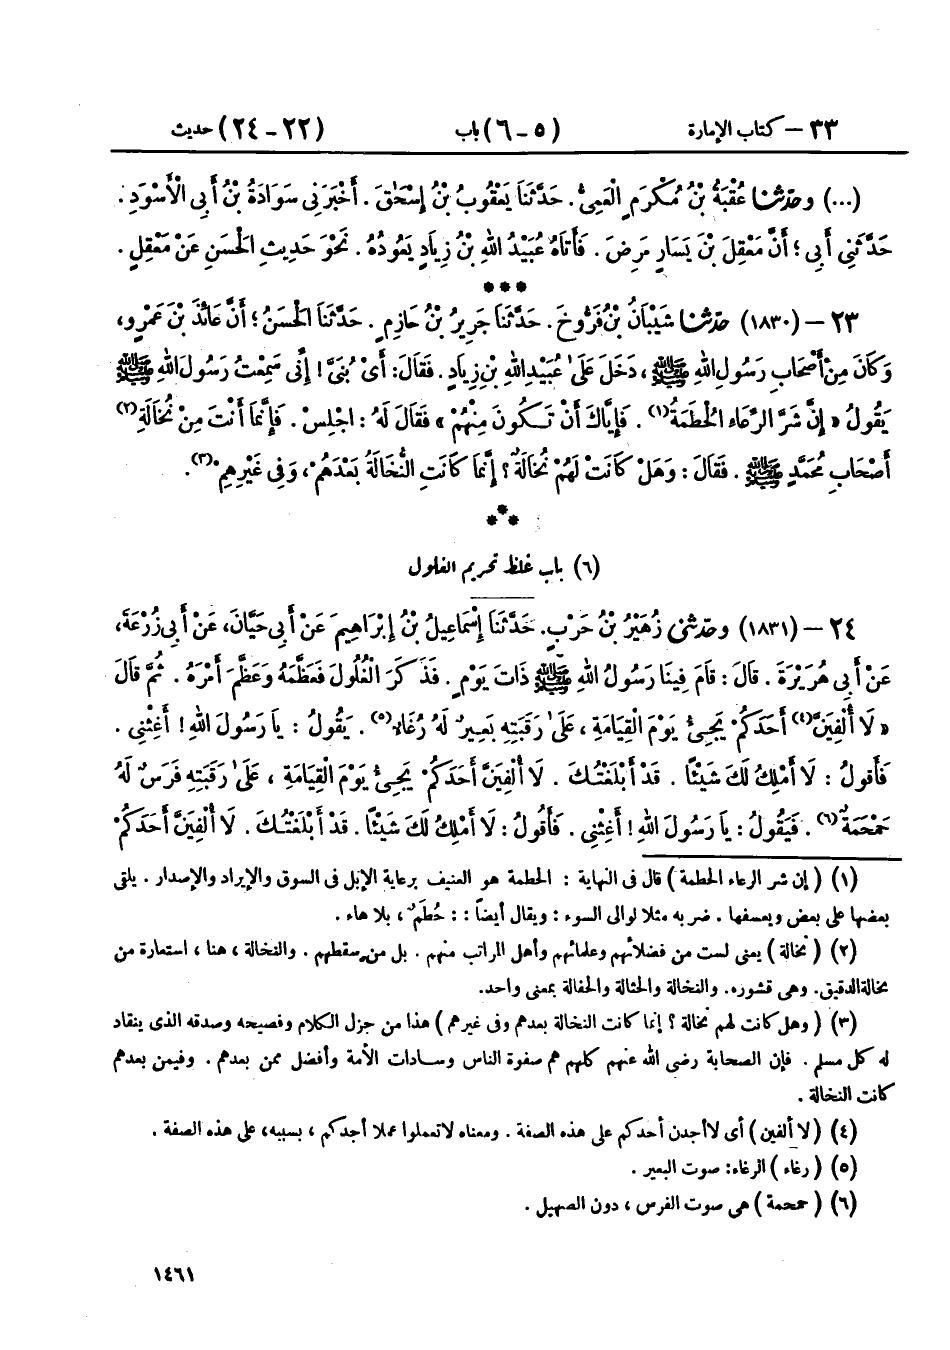 ٣٣ – كتاب الإمارة (٥ – ٦) باب (٢٢ – ٢٤) حديث
(...) وحَدَّثَنَا عُقْبَةُ بْنُ مُكْرَمٍ الْعَمِّيُّ. حَدَّثَنَا يَعْقُوبُ بْنُ إِسْحَاقَ. أَخْبَرَنِي سَوَادَةُ بْنُ أَبِي الْأَسْوَدِ.
حَدَّثَنِي أَبِي؛ أَنَّ مَعْقِلَ بْنَ يَسَارٍ مَرِضَ. فَأَتَاهُ عُبَيْدُ اللهِ بْنُ زِيَادٍ يَعُودُهُ. نَحْوَ حَدِيثِ الْحَسَنِ عَنْ مَعْقِلٍ.
***
٢٣ – (١٨٣٠) حَدَّثَنَا شَيْبَانُ بْنُ فَرُّوخَ. حَدَّثَنَا جَرِيرُ بْنُ حَازِمٍ. حَدَّثَنَا الْحَسَنُ؛ أَنَّ عَائِذَ بْنَ عَمْرٍو،
وَكَانَ مِنْ أَصْحَابِ رَسُولِ اللهِ ﷺ، دَخَلَ عَلَى عُبَيْدِ اللهِ بْنِ زِيَادٍ. فَقَالَ: أَيْ بُنَيَّ! إِنِّي سَمِعْتُ رَسُولَ اللهِ ﷺ
يَقُولُ «إِنَّ شَرَّ الرِّعَاءِ الْحُطَمَةُ(١). فَإِيَّاكَ أَنْ تَكُونَ مِنْهُمْ» فَقَالَ لَهُ: اجْلِسْ. فَإِنَّمَا أَنْتَ مِنْ نُخَالَةِ(٢)
أَصْحَابِ مُحَمَّدٍ ﷺ. فَقَالَ: وَهَلْ كَانَتْ لَهُمْ نُخَالَةٌ؟ إِنَّمَا كَانَتِ النُّخَالَةُ بَعْدَهُمْ، وَفِي غَيْرِهِمْ(٣).
***
(٦) باب غلظ تحريم الغلول
٢٤ – (١٨٣١) وحَدَّثَنِي زُهَيْرُ بْنُ حَرْبٍ. حَدَّثَنَا إِسْمَاعِيلُ بْنُ إِبْرَاهِيمَ عَنْ أَبِي حَيَّانَ، عَنْ أَبِي زُرْعَةَ،
عَنْ أَبِي هُرَيْرَةَ. قَالَ: قَامَ فِينَا رَسُولُ اللهِ ﷺ ذَاتَ يَوْمٍ. فَذَكَرَ الْغُلُولَ فَعَظَّمَهُ وَعَظَّمَ أَمْرَهُ. ثُمَّ قَالَ
«لَا أُلْفِيَنَّ(٤) أَحَدَكُمْ يَجِيءُ يَوْمَ الْقِيَامَةِ، عَلَى رَقَبَتِهِ بَعِيرٌ لَهُ رُغَاءٌ(٥). يَقُولُ: يَا رَسُولَ اللهِ! أَغِثْنِي.
فَأَقُولُ: لَا أَمْلِكُ لَكَ شَيْئًا. قَدْ أَبْلَغْتُكَ. لَا أُلْفِيَنَّ أَحَدَكُمْ يَجِيءُ يَوْمَ الْقِيَامَةِ، عَلَى رَقَبَتِهِ فَرَسٌ لَهُ
حَمْحَمَةٌ(٦). فَيَقُولُ: يَا رَسُولَ اللهِ! أَغِثْنِي. فَأَقُولُ: لَا أَمْلِكُ لَكَ شَيْئًا. قَدْ أَبْلَغْتُكَ. لَا أُلْفِيَنَّ أَحَدَكُمْ
(١) (إن شر الرعاء الحطمة) قال في النهاية: الحطمة هو العنيف برعاية الإبل في السوق والإيراد والإصدار. يلقى
بعضها على بعض ويعسفها. ضربه مثلا لوالى السوء: ويقال أيضاً:: حُطَمٌ، بلا هاء.
(٢) (نخالة) يعنى لست من فضلائهم وعلمائهم وأهل المراتب منهم. بل من سقطهم. والنخالة، هنا، استعارة من
نخالة الدقيق. وهي قشوره. والنخالة والحثالة والحفالة بمعنى واحد.
(٣) (وهل كانت لهم نخالة؟ إنما كانت النخالة بعدهم وفي غيرهم) هذا من جزل الكلام وفصيحه وصدقه الذى ينقاد
له كل مسلم. فإن الصحابة رضى الله عنهم كلهم هم صفوة الناس وسادات الأمة وأفضل ممن بعدهم. وفيمن بعدهم
كانت النخالة.
(٤) (لا ألفين) أى لا أجدن أحدكم على هذه الصفة. ومعناه لا تعملوا عملا أجدكم، بسببه، على هذه الصفة.
(٥) (رغاء) الرغاء: صوت البعير.
(٦) (حمحمة) هي صوت الفرس، دون الصهيل.
١٤٦١